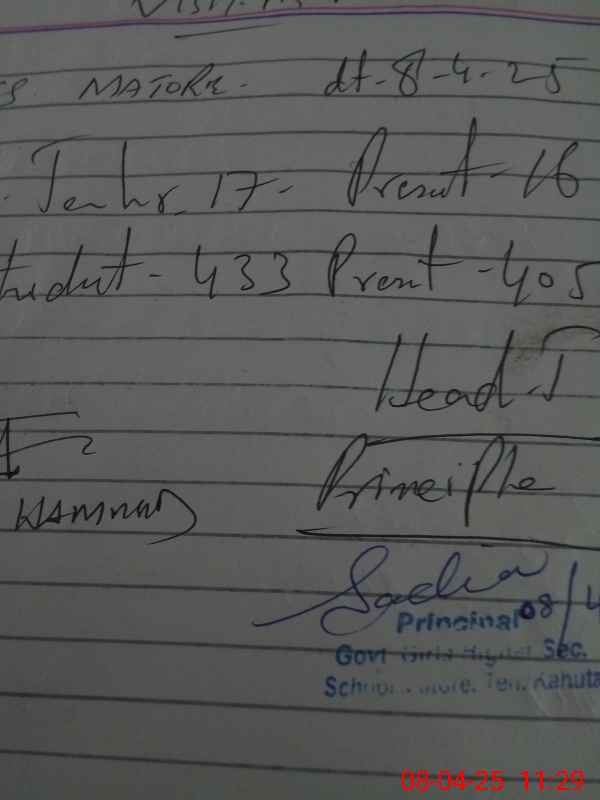 MATORE. dt-8-4-25
Teahr. 17- Present-16
tudent-433 Present-405
Head-T
Principle
HAMMAD
Principal 08/4
Govt Girls Higher Sec.
School Matore. Teh. Kahuta
08-04-25 11:29